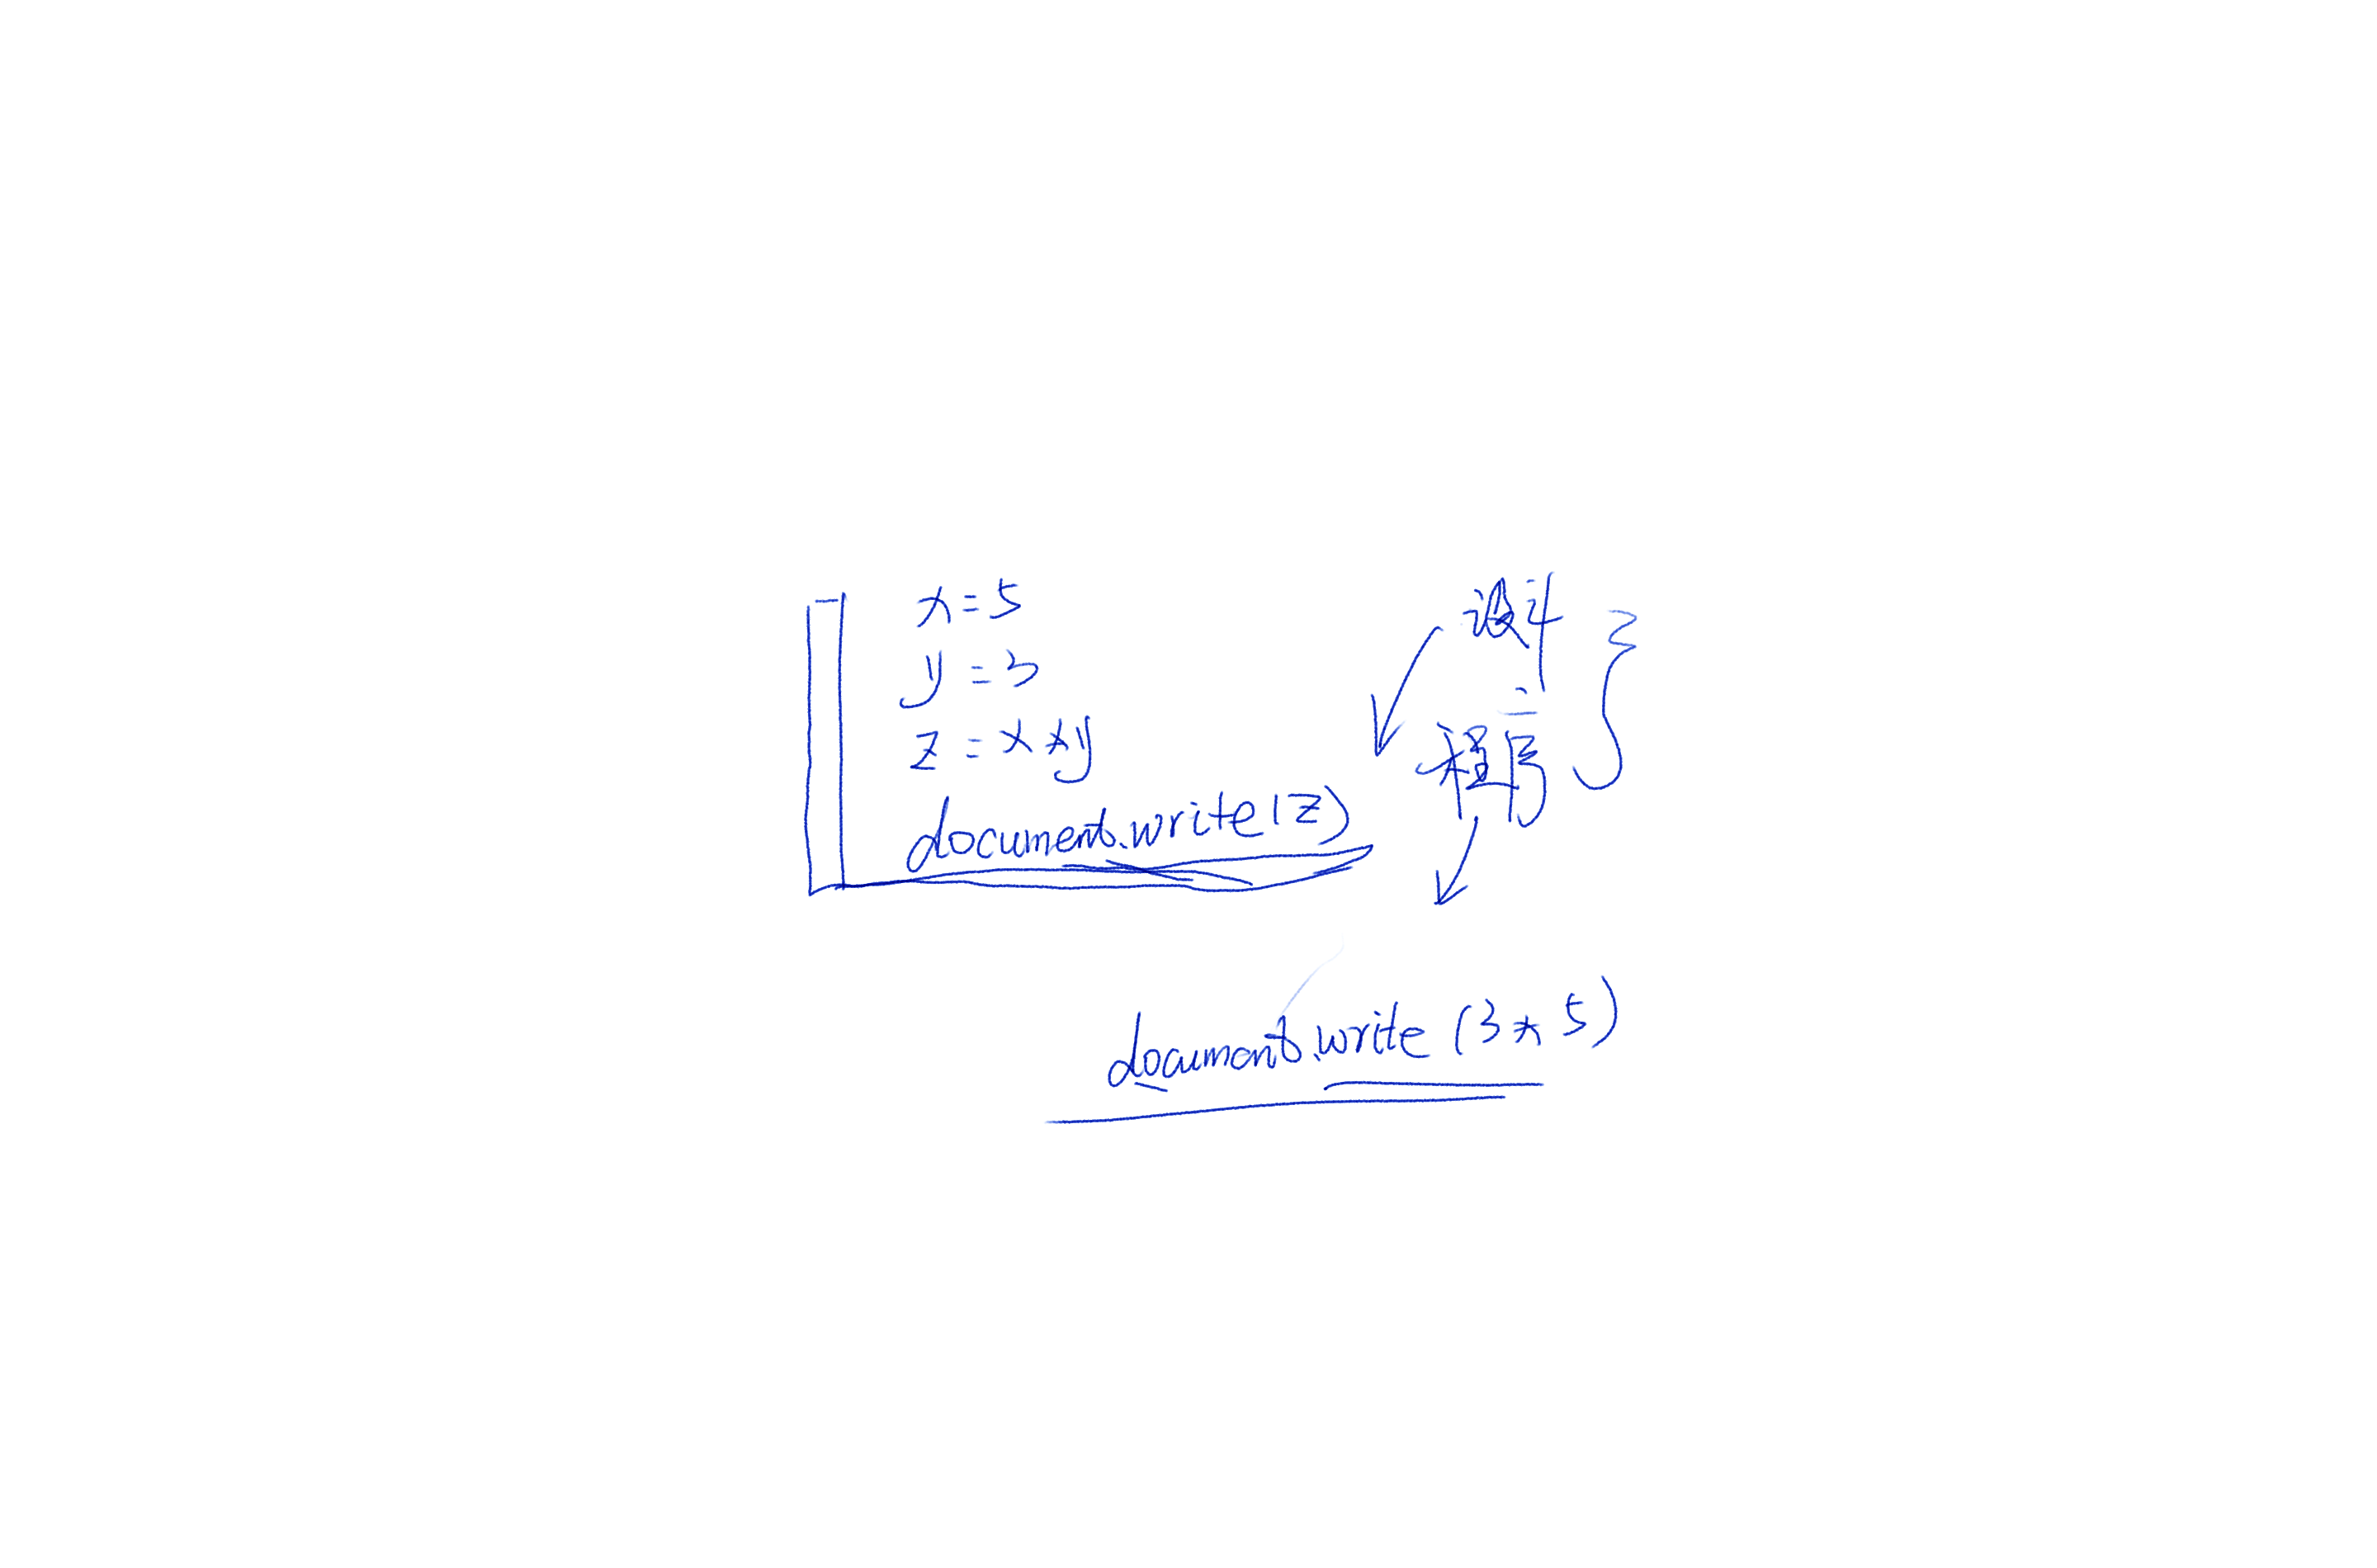 x=5
y=3
z=x*y
document.write(z)
设计
程序
document.write(3*5)